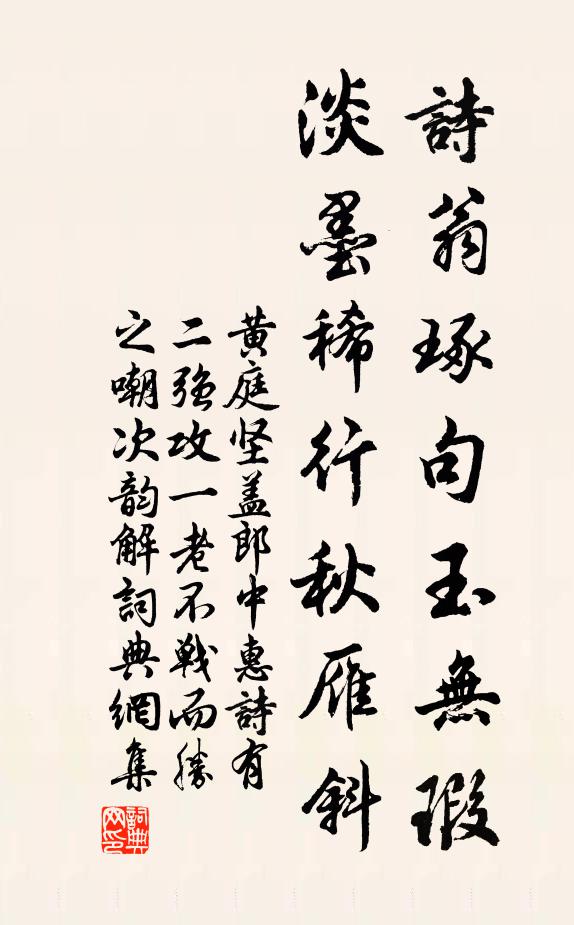 詩翁琢句玉無瑕
淡墨稀行秋雁斜
黄庭坚盖郎中惠詩有
二強攻一老不戰而勝
之嘲次韵解詞典網集
詞典网印